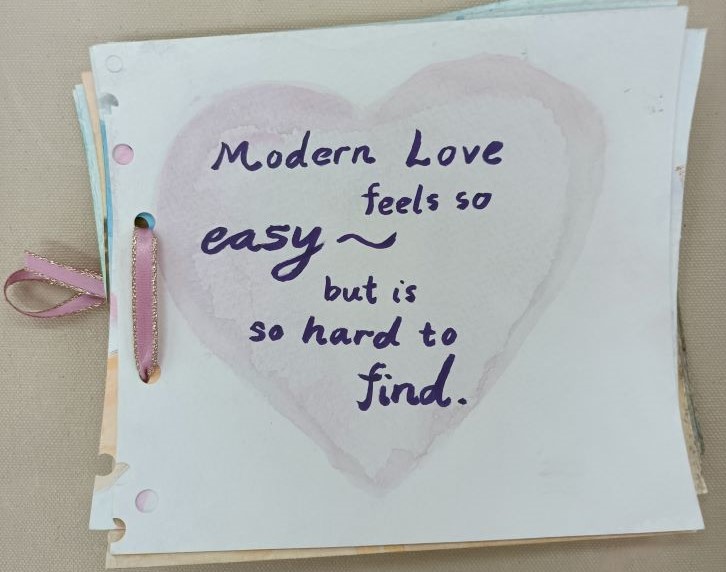 Modern Love
feels so
easy ~
but is
so hard to
find.